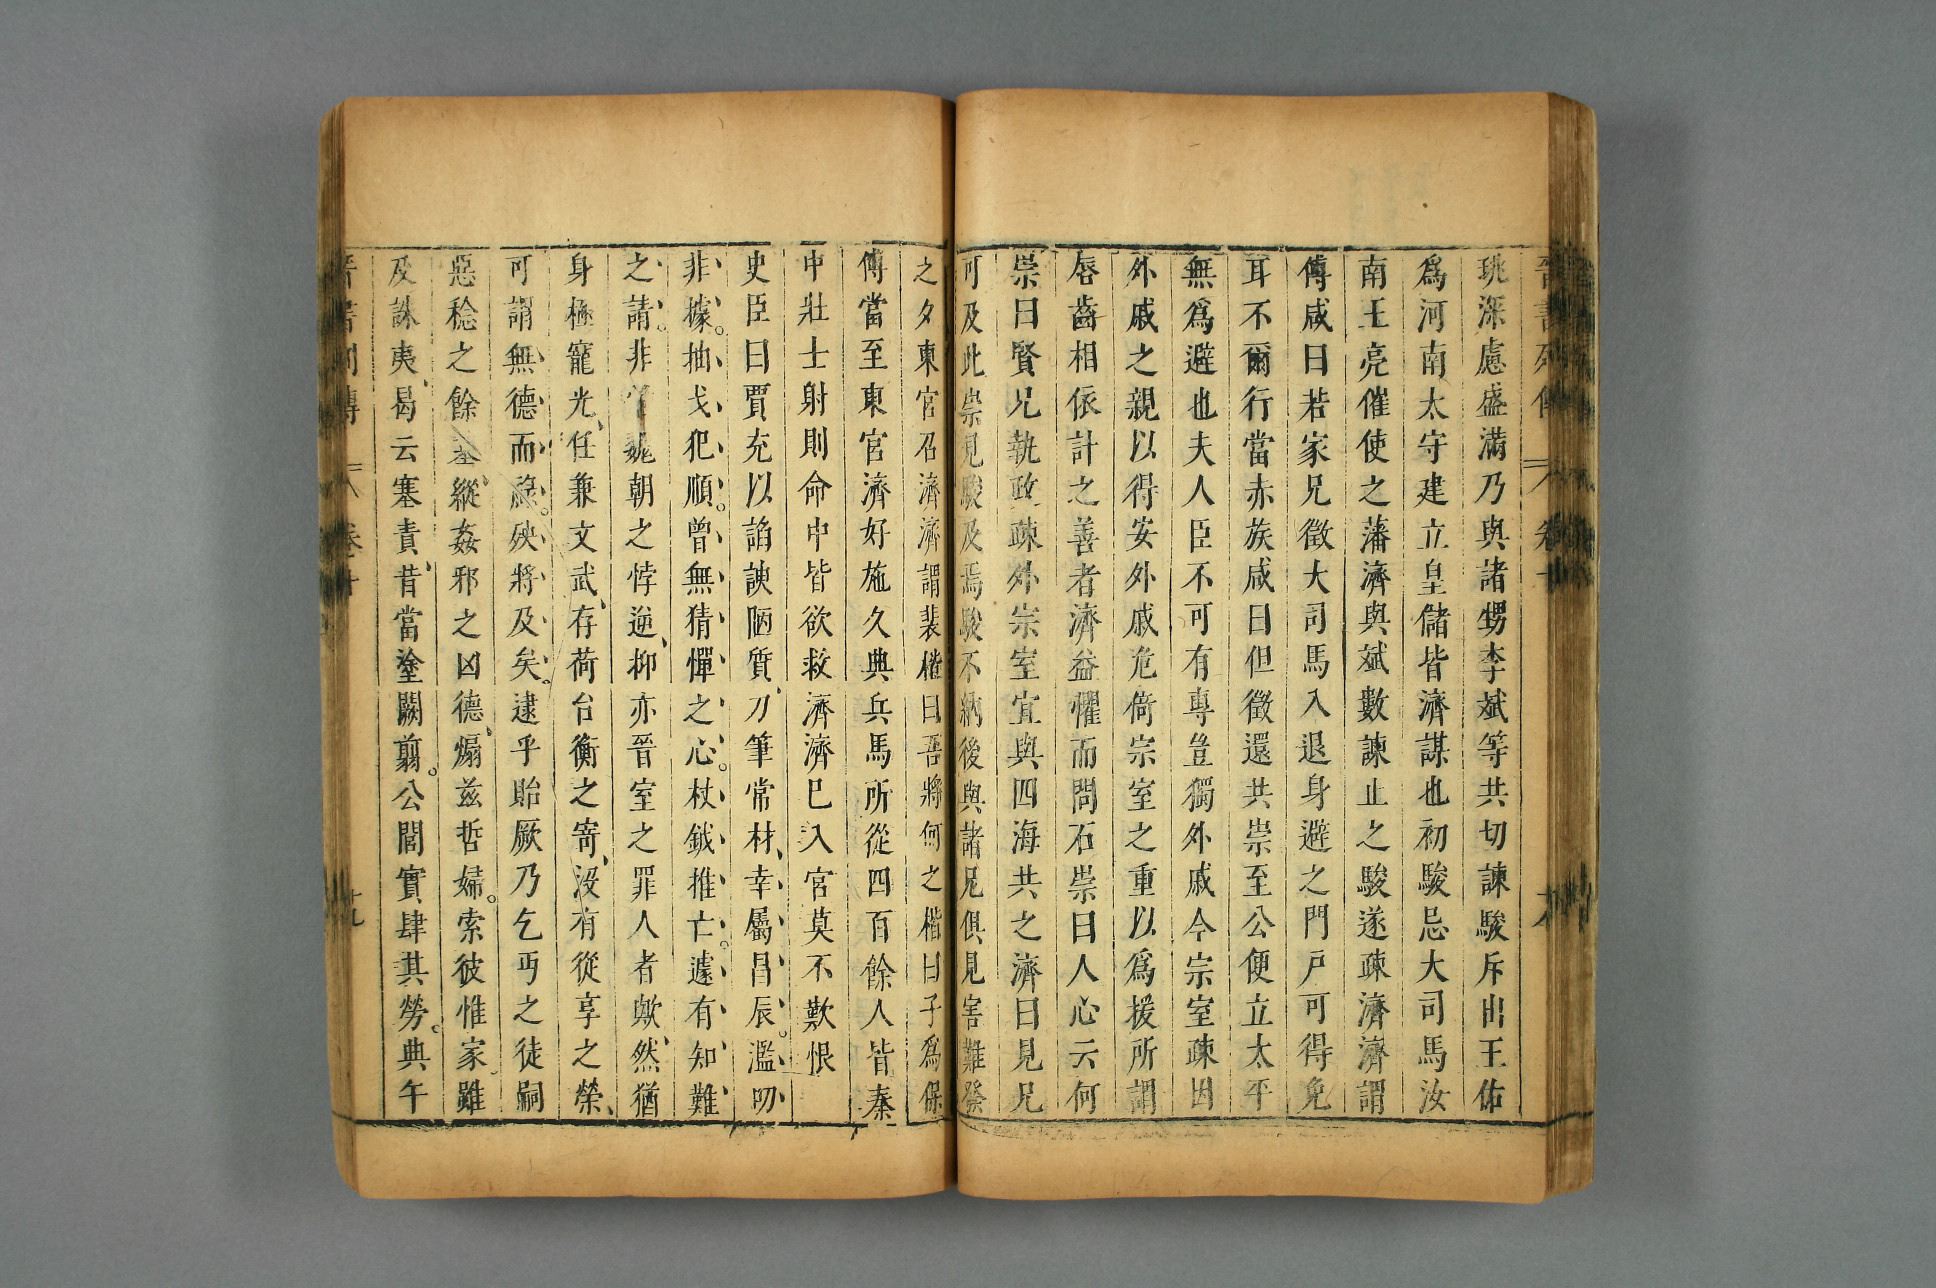 珧深慮盛滿乃與諸甥李斌等共切諫駿斥出王佑
爲河南太守建立皇儲皆濟謀也初駿忌大司馬汝
南王亮催使之藩濟與斌數諫止之駿遂疎濟濟謂
傅咸曰若家兄徵大司馬入退身避之門戸可得免
耳不爾行當赤族咸曰但徵還共崇至公便立太平
無爲避也夫人臣不可有專豈獨外戚今宗室疎因
外戚之親以得安外戚危倚宗室之重以爲援所謂
唇齒相依計之善者濟益懼而問石崇曰人心云何
崇曰賢兄執政疎外宗室宜與四海共之濟曰見兄
可及此崇見駿及焉駿不納後與諸兄俱見害難發
之夕東宮召濟濟謂裴楷曰吾將何之楷曰子爲保
傅當至東宮濟好施久典兵馬所從四百餘人皆秦
中壯士射則命中皆欲救濟濟已入宮莫不歎恨
史臣曰賈充以諂諛陋質刀筆常材幸屬昌辰濫叨
非據抽戈犯順曾無猜憚之心杖鉞推亡遽有知難
之請非魏朝之悖逆抑亦晉室之罪人者歟然猶
身極寵光任兼文武存荷台衡之寄沒有從享之榮
可謂無德而祿殃將及矣逮乎貽厥乃乞丐之徒嗣
惡稔之餘基縱姦邪之凶德煽茲哲婦索彼惟家雖
及誅夷曷云塞責昔當塗闕翦公閭實肆其勞典午
晉書列傳 卷十 十九